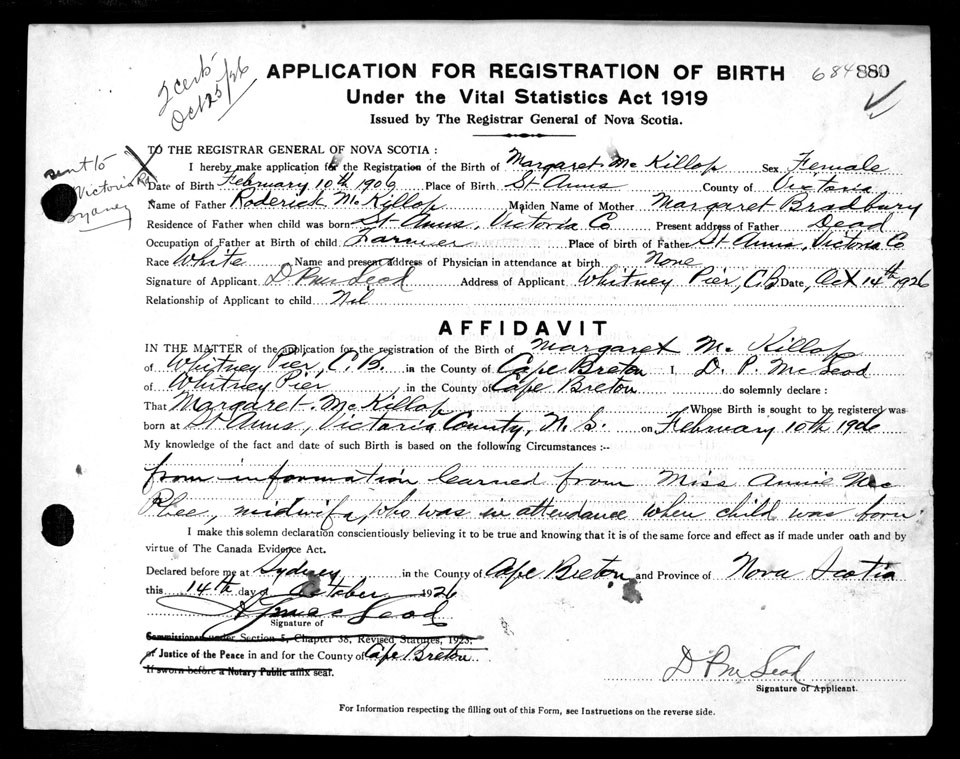 2 certs
Oct 25/26
APPLICATION FOR REGISTRATION OF BIRTH
684 880
Under the Vital Statistics Act 1919
Issued by The Registrar General of Nova Scotia.
sent to
Victoria Rd
Sydney
TO THE REGISTRAR GENERAL OF NOVA SCOTIA :
I hereby make application for the Registration of the Birth of Margaret McKillop Sex Female
Date of Birth February 10th 1906 Place of Birth St Anns County of Victoria
Name of Father Roderick McKillop Maiden Name of Mother Margaret Bradbury
Residence of Father when child was born St Anns, Victoria Co Present address of Father Dead
Occupation of Father at Birth of child Farmer Place of birth of Father St Anns, Victoria Co
Race White Name and present address of Physician in attendance at birth None
Signature of Applicant D P McLeod Address of Applicant Whitney Pier, C.B. Date, Oct 14th 1926
Relationship of Applicant to child Nil
AFFIDAVIT
IN THE MATTER of the application for the registration of the Birth of Margaret McKillop
of Whitney Pier, C.B. in the County of Cape Breton I D. P. McLeod
of Whitney Pier, in the County of Cape Breton do solemnly declare :
That Margaret McKillop Whose Birth is sought to be registered was
born at St Anns, Victoria County, N. S. on February 10th 1906
My knowledge of the fact and date of such Birth is based on the following Circumstances :--
from information learned from Miss Annie Mc
Phee, midwife, who was in attendance when child was born
I make this solemn declaration conscientiously believing it to be true and knowing that it is of the same force and effect as if made under oath and by
virtue of The Canada Evidence Act.
Declared before me at Sydney in the County of Cape Breton and Province of Nova Scotia
this 14th day of October 1926
MacLeod
Signature of
Commissioner under Section 5, Chapter 38, Revised Statutes, 1923;
or Justice of the Peace in and for the County of Cape Breton
If sworn before a Notary Public affix seal.
D P McLeod
Signature of Applicant.
For Information respecting the filling out of this Form, see Instructions on the reverse side.